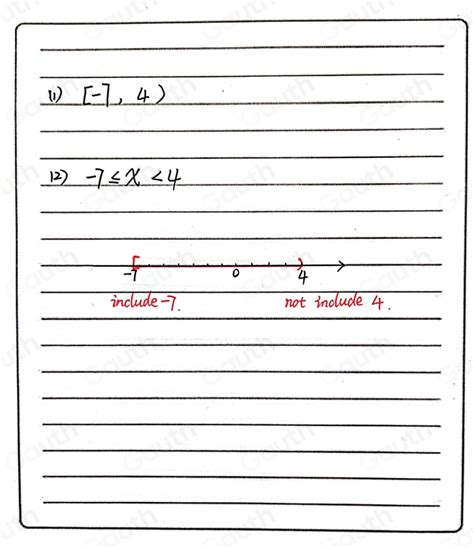 (1) [-7, 4)
(2) -7 ≤ x < 4
-7 0 4
include -7. not include 4.